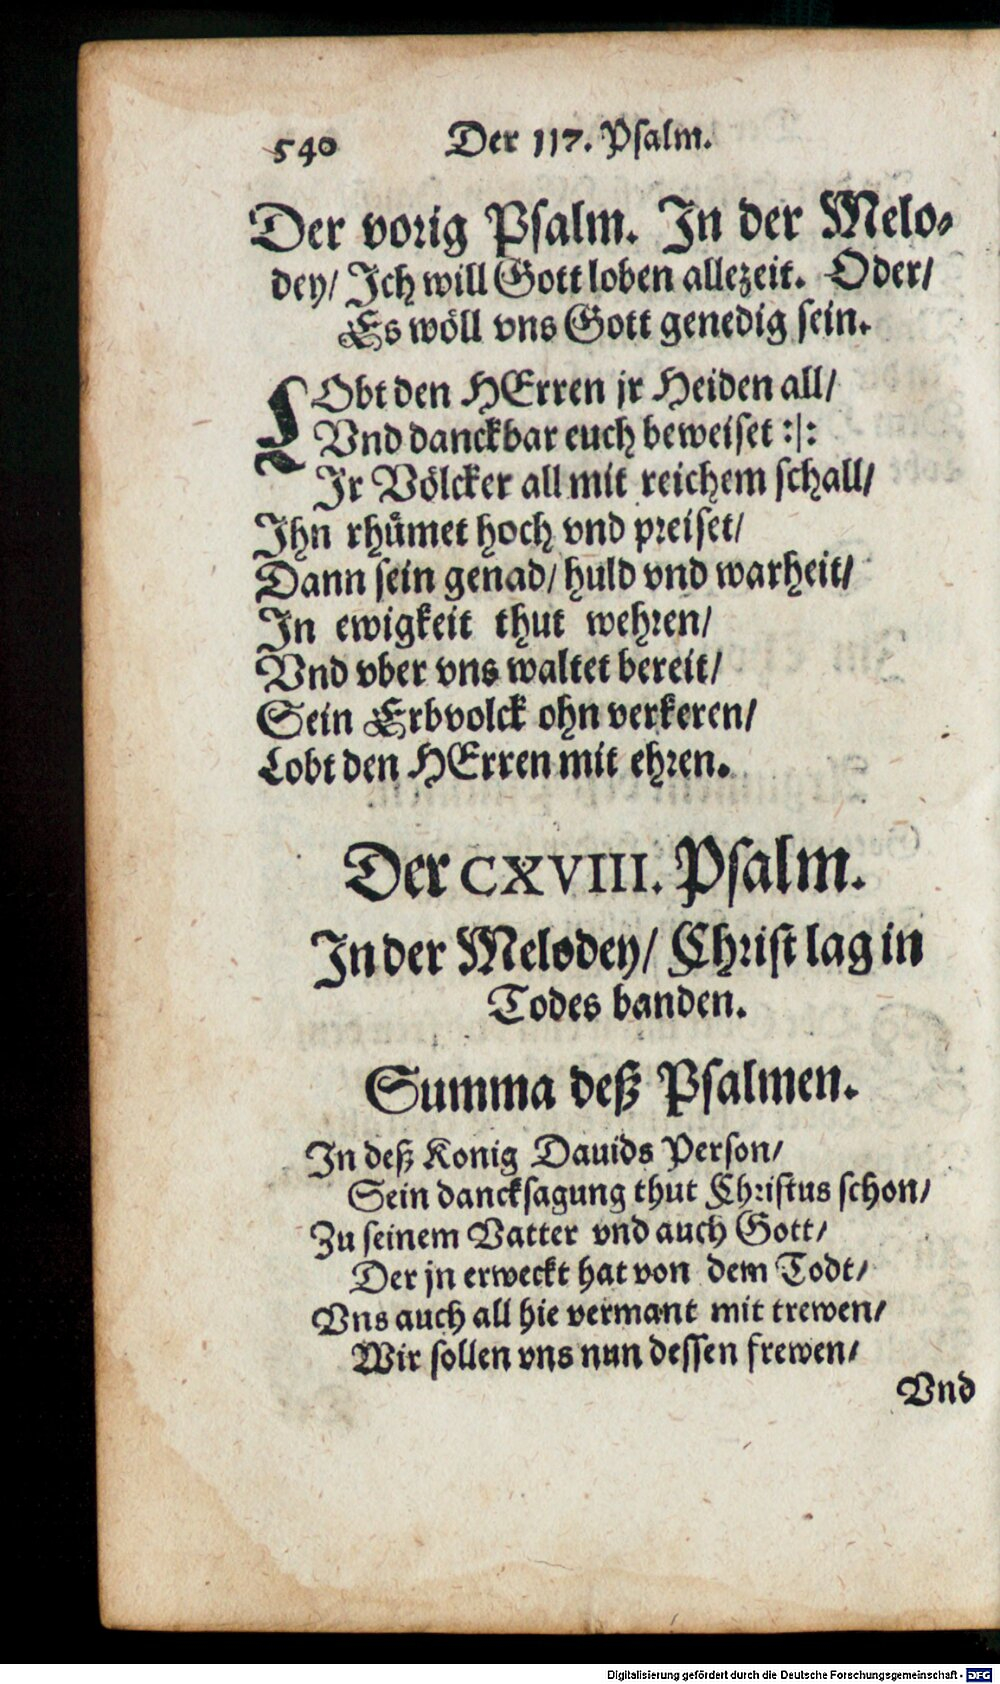 540 Der 117. Psalm.
Der vorig Psalm. In der Melo-
dey/ Ich will Gott loben allezeit. Oder/
Es wöll vns Gott genedig sein.
LObt den HErren jr Heiden all/
Vnd danckbar euch beweiset :|:
Ir Völcker all mit reichem schall/
Ihn rhůmet hoch vnd preiset/
Dann sein genad/ huld vnd warheit/
In ewigkeit thut wehren/
Vnd vber vns waltet bereit/
Sein Erbvolck ohn verkeren/
Lobt den HErren mit ehren.
Der CXVIII. Psalm.
In der Melodey/ Christ lag in
Todes banden.
Summa deß Psalmen.
In deß Konig Dauids Person/
Sein dancksagung thut Christus schon/
Zu seinem Vatter vnd auch Gott/
Der jn erweckt hat von dem Todt/
Vns auch all hie vermant mit trewen/
Wir sollen vns nun dessen frewen/
Vnd
Digitalisierung gefördert durch die Deutsche Forschungsgemeinschaft - DFG